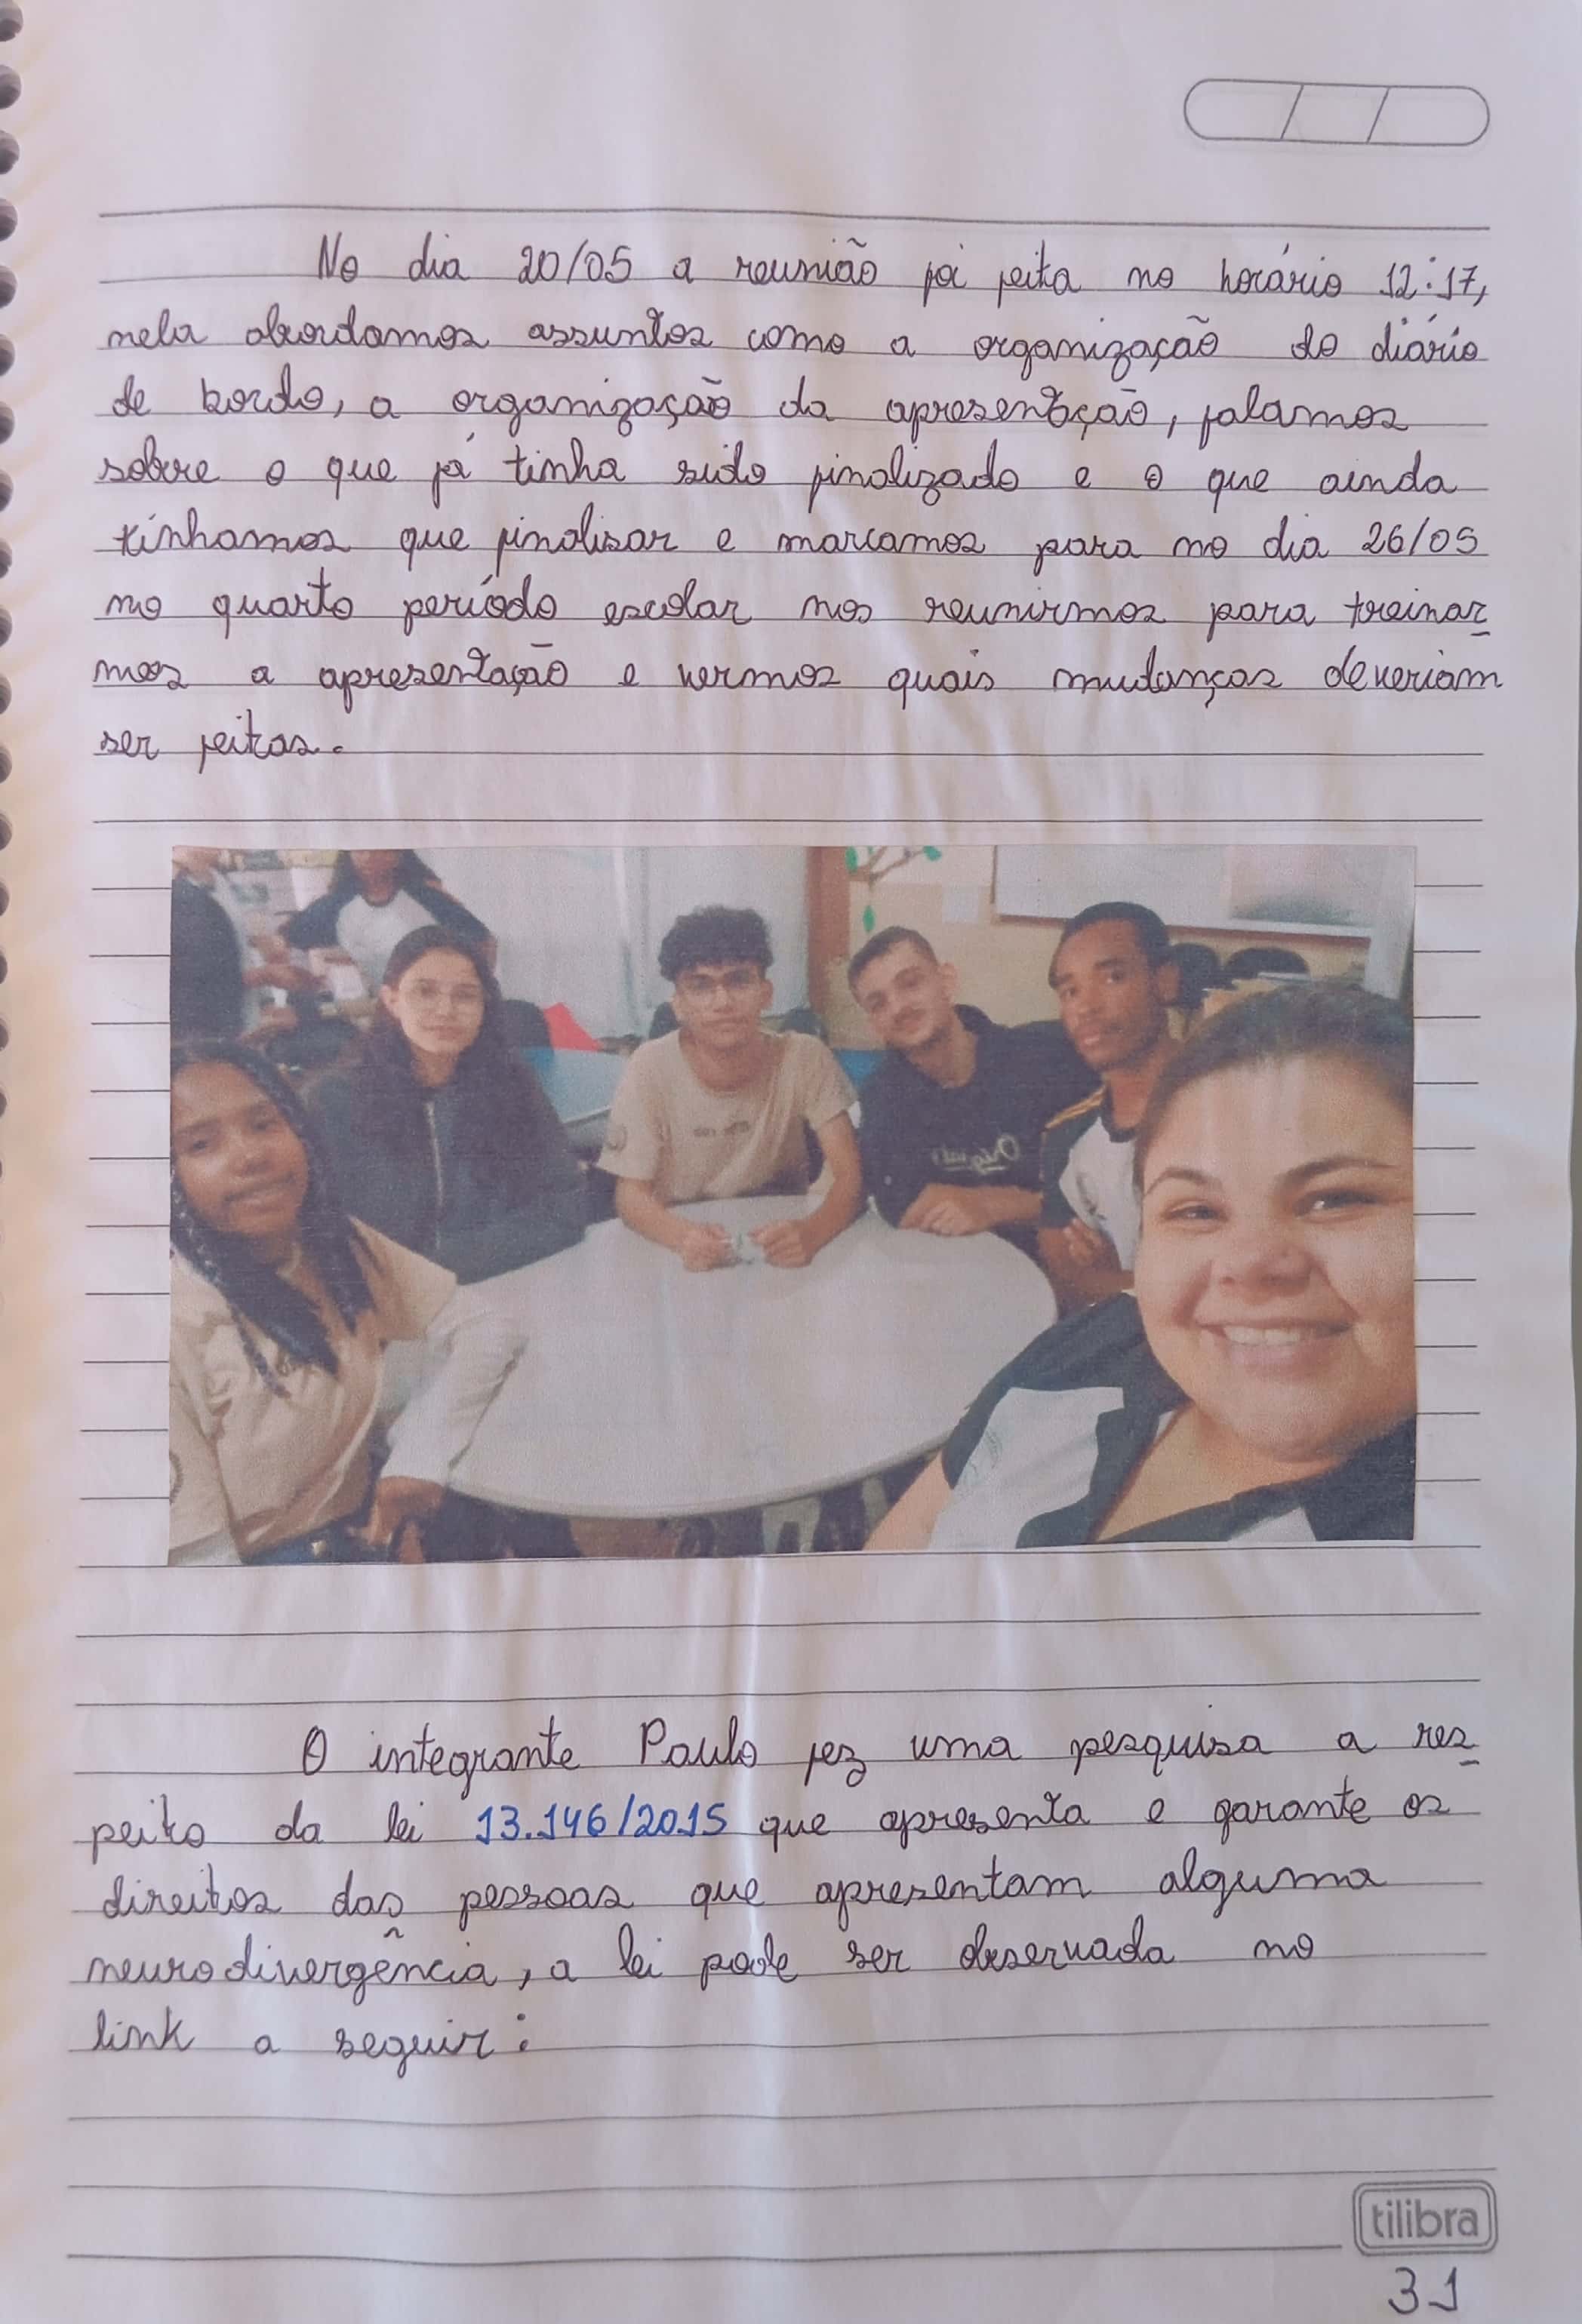 No dia 20/05 a reunião foi feita no horário 12:17,
nela abordamos assuntos como a organização do diário
de bordo, a organização da apresentação, falamos
sobre o que já tinha sido finalizado e o que ainda
tínhamos que finalisar e marcamos para no dia 26/05
no quarto período escolar nos reunirmos para treinar
mos a apresentação e vermos quais mudanças deveriam
ser feitas.
Original
O integrante Paulo fez uma pesquisa a res
peito da lei 13.146/2015 que apresenta e garante os
direitos das pessoas que apresentam alguma
neurodivergência, a lei pode ser observada no
link a seguir:
tilibra
31